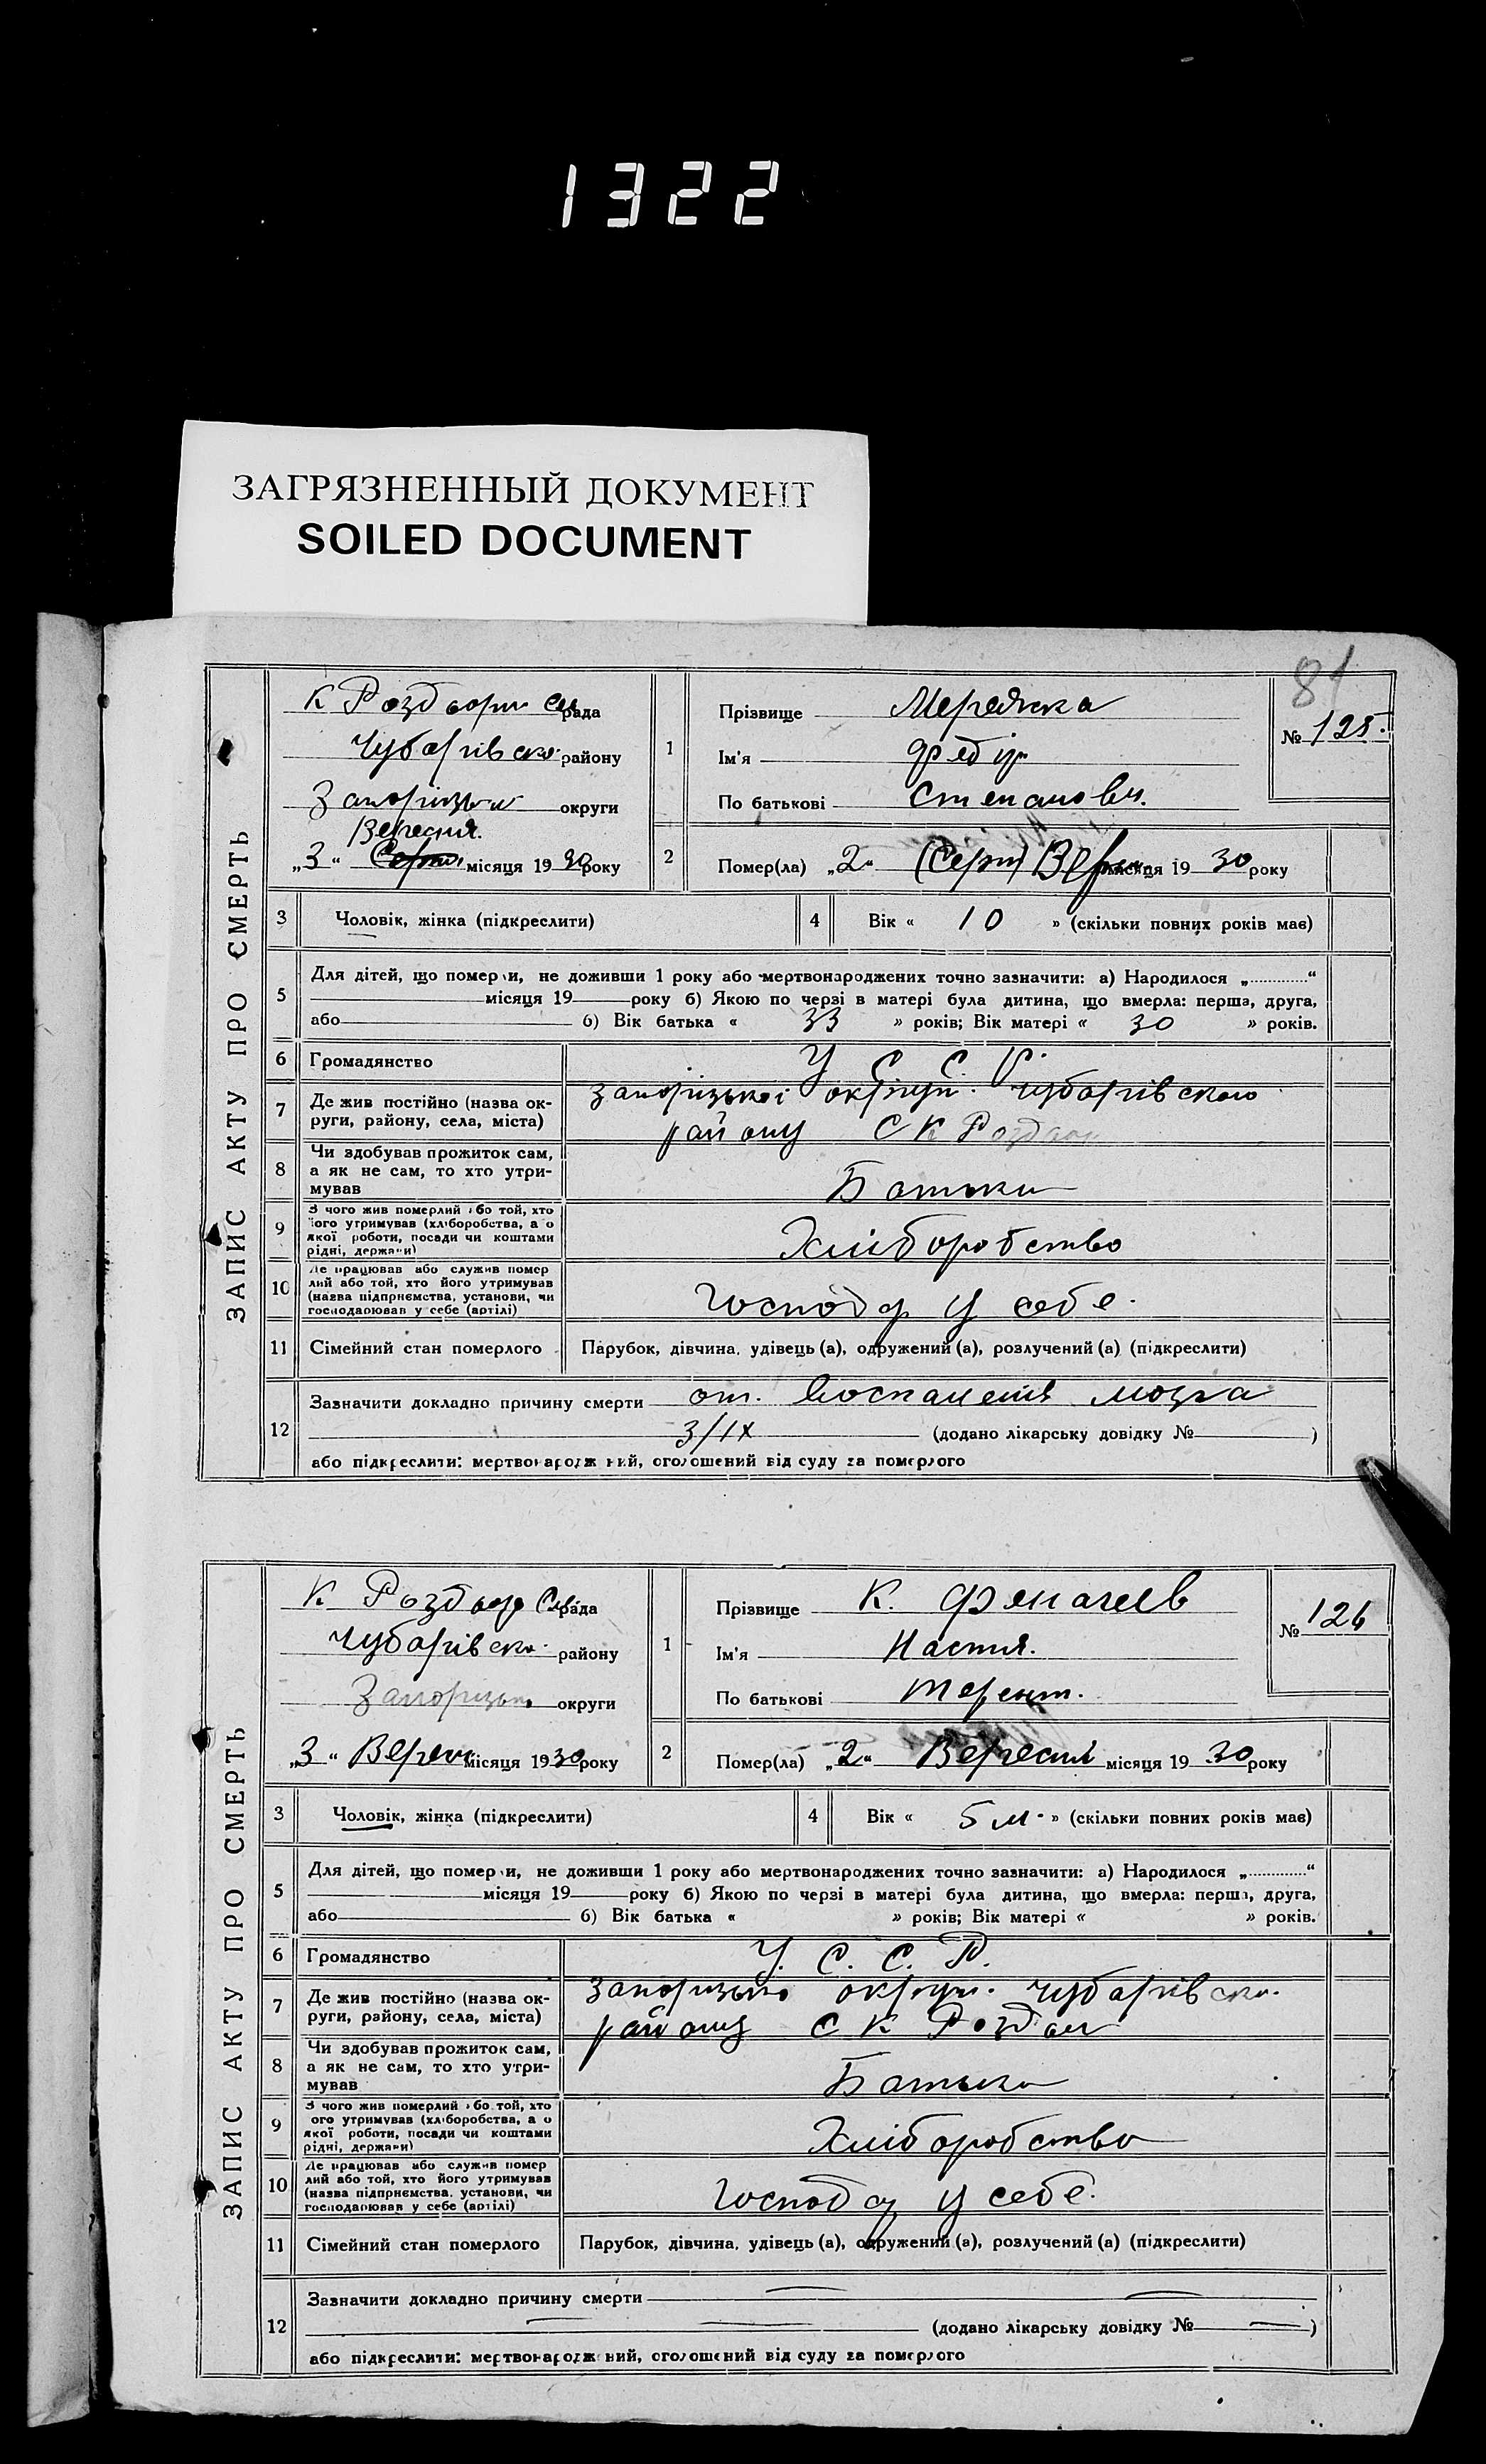 1322
ЗАГРЯЗНЕННЫЙ ДОКУМЕНТ
SOILED DOCUMENT
81
ЗАПИС АКТУ ПРО СМЕРТЬ
К Роздори Сел рада
Чубарівсько району
Запорізьки округи
Вересня.
„3“ Серпн місяця 1930 року
1
Прізвище
Ім'я Федір
По батькові Степанович.
№ 125.
2 Помер(ла) „2“ (Серп) Вересн місяця 1930 року
3 Чоловік, жінка (підкреслити)
4 Вік « 10 » (скільки повних років має)
5 Для дітей, що померли, не доживши 1 року або мертвонароджених точно зазначити: а) Народилося „............“
місяця 19 року б) Якою по черзі в матері була дитина, що вмерла: перша, друга,
або б) Вік батька « 33 » років; Вік матері « 30 » років.
6 Громадянство У С С Р.
7 Де жив постійно (назва ок-
руги, району, села, міста)
запорізької округи. чубарівского
району С К Роздор
8 Чи здобував прожиток сам,
а як не сам, то хто утри-
мував
Батьки
9 З чого жив померлий або той, хто
його утримував (хліборобства, а о
якої роботи, посади чи коштами
рідні, держави)
Хліборобство
10 Де працював або служив помер
лий або той, хто його утримував
(назва підприємства, установи, чи
господарював у себе (артілі)
Господар у себе.
11 Сімейний стан померлого Парубок, дівчина, удівець (а), одружений (а), розлучений (а) (підкреслити)
12 Зазначити докладно причину смерти от. воспаления мозга
3/IX (додано лікарську довідку № )
або підкреслити: мертвонароджений, оголошений від суду за померлого
ЗАПИС АКТУ ПРО СМЕРТЬ
К Роздор Сел рада
Чубарівсько. району
Запорізько округи
„3“ Вересн місяця 1930 року
1
Прізвище К.
Ім'я Настя.
По батькові Терент.
№ 126
2 Помер(ла) „2“ Вересня місяця 1930 року
3 Чоловік, жінка (підкреслити)
4 Вік « 5 м. » (скільки повних років має)
5 Для дітей, що померли, не доживши 1 року або мертвонароджених точно зазначити: а) Народилося „............“
місяця 19 року б) Якою по черзі в матері була дитина, що вмерла: перша, друга,
або б) Вік батька « » років; Вік матері « » років.
6 Громадянство У. С. С. Р.
7 Де жив постійно (назва ок-
руги, району, села, міста)
запорізько округи. чубарівсько.
району С К Роздор
8 Чи здобував прожиток сам,
а як не сам, то хто утри-
мував
Батьки
9 З чого жив померлий або той, хто
ого утримував (хліборобства, а о
якої роботи, посади чи коштами
рідні, держави)
Хліборобство
10 Де працював або служив помер
лий або той, хто його утримував
(назва підприємства, установи, чи
господарював у себе (артілі)
Господар у себе.
11 Сімейний стан померлого Парубок, дівчина, удівець (а), одружений (а), розлучений (а) (підкреслити)
12 Зазначити докладно причину смерти
(додано лікарську довідку № — )
або підкреслити: мертвонароджений, оголошений від суду за померлого